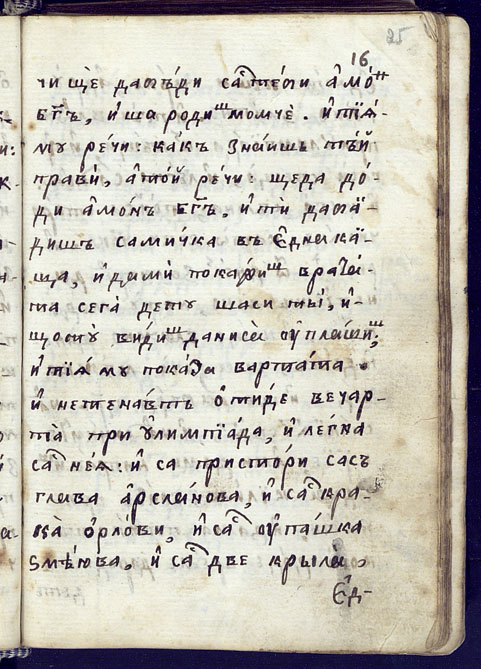 25
16
чи ще даѡъди саⷭтеѳи а҆мо́ⷩ
бг҃ъ, и҆ ща роди ⷲ момчѐ. и҆ тїѧ́-
му ре́чи: ка́къ зна́ишъ тъ́й
прави̇̀, а҆то́й ре́чи: щеда до́-
ди а҆мо́нъ бг҃ъ, и҆ти̇̀ даѳа̑-
дишъ сами́чка въ є҆дна̀ ка̑-
ща, и҆ дами̇̀ пока́жи ⷲ врата́-
та сега̀ дету щаси ты̀, и҆-
щосту̀ ви́ди ⷲ даниса̀ оу҆пла́ши ⷲ;
и҆ тїѧ́ му пока́за вартата .
и҆ нетена́въ о҆ти́де вечар-
та̀ при о҆лимпїа́да, и҆ ле́гна
саⷭ не́ѧ: и҆ са присто́ри сасъ
глава а҆рсла́нова, и҆ саⷭ кра-
ка̀ о҆рло́ви, и҆ саⷭ оу҆па́шка
ѕмѣ́юва, и҆ саⷭ две крыла̀,
є҆д-